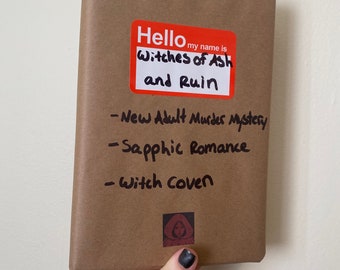 Hello
my name is
Witches of Ash
and Ruin
- New Adult Murder Mystery
- Sapphic Romance
- Witch Coven